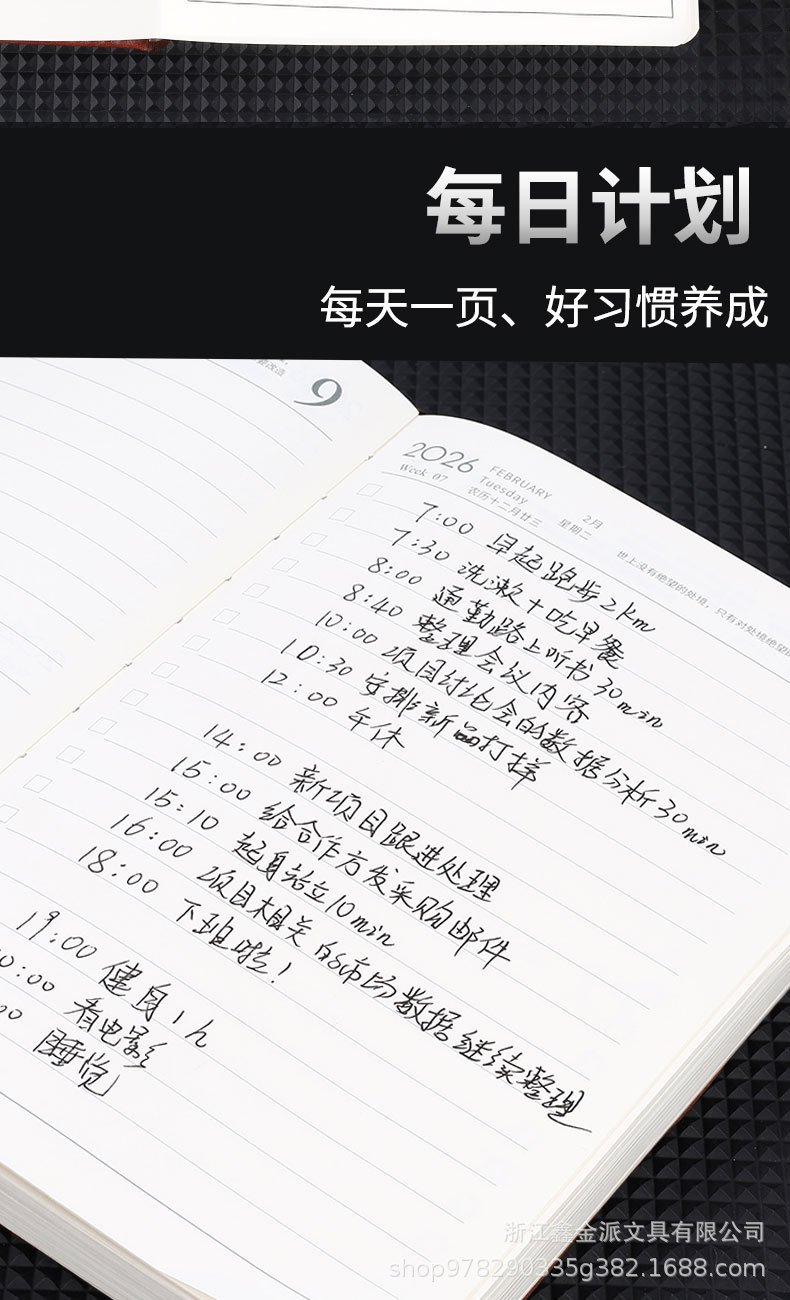 每日计划
每天一页、好习惯养成
9
2026 FEBRUARY 2月
Week 07 Tuesday 星期二
农历十二月廿三
世上没有绝望的处境，只有对处境绝望的
7:00 早起跑步2km
7:30 洗漱+吃早餐
8:00 通勤路上听书30min
8:40 整理会议内容
10:00 项目讨论会的数据分析30min
10:30 安排新品打样
12:00 午休
14:00 新项目跟进处理
15:00 给合作方发采购邮件
15:10 起身站立10min
16:00 项目相关的市场数据继续整理
18:00 下班啦!
19:00 健身1h
0:00 看电影
00 睡觉
浙江鑫金派文具有限公司
shop978290335g382.1688.com